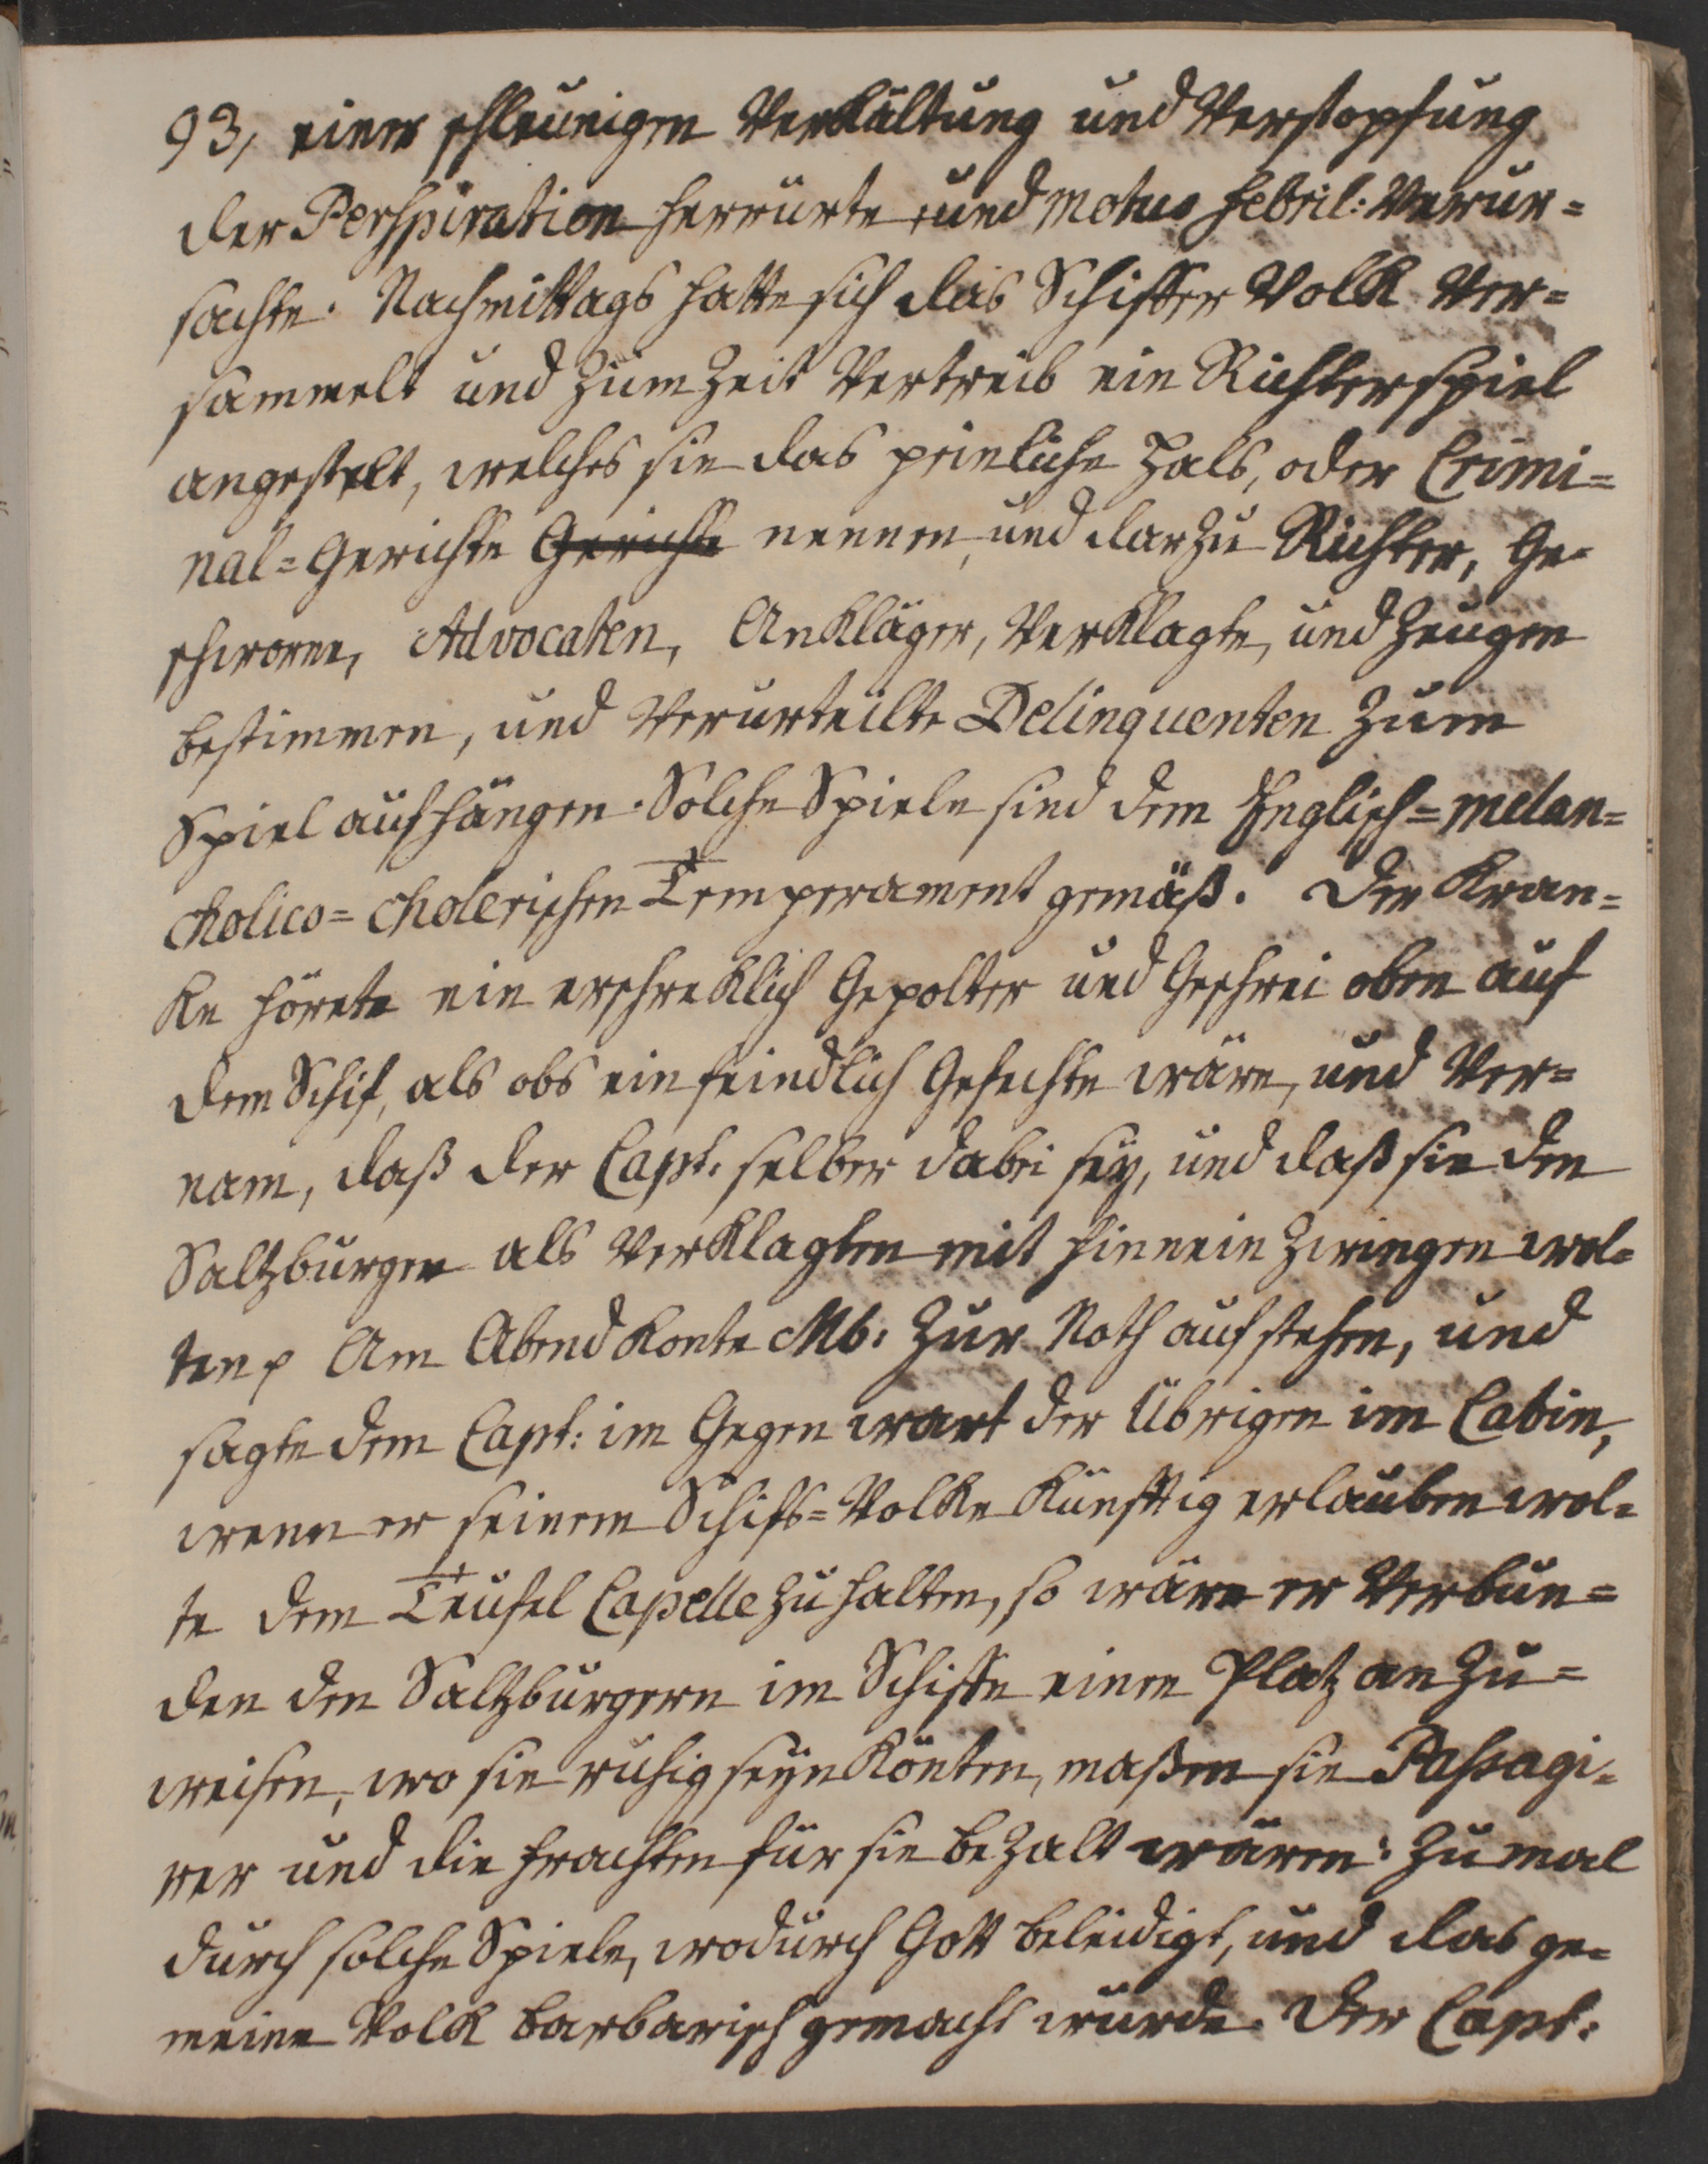 93, einer schleunigen Verkältung und Verstopfung
der Perspiration herrürte, und motus febril: verur=
sachte. Nachmittags hatte sich das Schiffer Volk ver=
sammelt und zum Zeit Vertreib ein Richterspiel
angestelt, welches sie das peinliche Hals, oder Crimi=
nal=Gerichte Gerichte nennen, und darzu Richter, Ge=
schworne, Advocaten, Ankläger, Verklagte, und Zeugen
bestimmen, und verurteilte Delinquenten zum
Spiel aufhängen. Solche Spiele sind dem Englisch=melan=
cholico=cholerischen Temperament gemäß. Der Kran=
ke hörete ein erschreklich Gepolter und Geschrei oben auf
dem Schif, als obs ein feindlich Gefechte wäre, und ver=
nam, daß der Capt: selber dabei sey, und daß sie den
Saltzburger als Verklagten mit hinnein zwingen wol=
ten p Am Abend konte Mb: zur Noth aufstehen, und
sagte dem Capt: im Gegenwart der Übrigen im Cabin,
wenn er seinem Schifs=Volke künfftig erlauben wol=
te dem Teufel Capelle zu halten, so wäre er verbun=
den den Saltzburgern im Schiffe einen Platz anzu=
weisen, wo sie ruhig seyn könten, maßen sie Passagi=
rer und die Frachten für sie bezalt wären: zumal
durch solche Spiele, wodurch Gott beleidigt, und das ge=
meine Volk barbarisch gemacht würde. Der Capt: